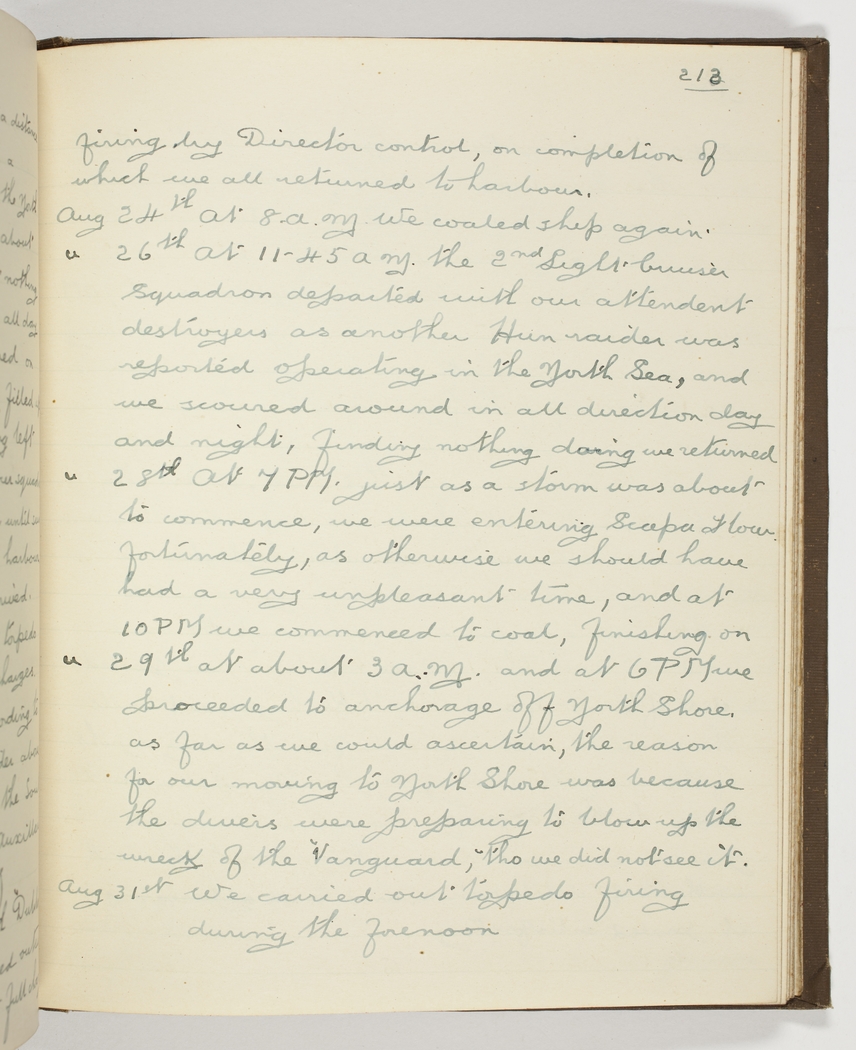 213
firing by Director control, on completion of
which we all returned to harbour.
Aug 24th At 8.a.m. We coaled ship again.
" 26th At 11-45 a m. the 2nd Light-cruiser
Squadron departed with our attendent
destroyers as another Hun raider was
reported operating in the North Sea, and
we scoured around in all direction day
and night, finding nothing doing we returned
" 28th At 7 PM. just as a storm was about
to commence, we were entering Scapa Flow
fortunately, as otherwise we should have
had a very unpleasant time, and at
10 PM we commenced to coal, finishing on
" 29th at about 3 a.m. and at 6 PM we
proceeded to anchorage off North Shore.
as far as we could ascertain, the reason
for our moving to North Shore was because
the divers were preparing to blow up the
wreck of the "Vanguard," tho we did not see it.
Aug 31st We carried out torpedo firing
during the forenoon